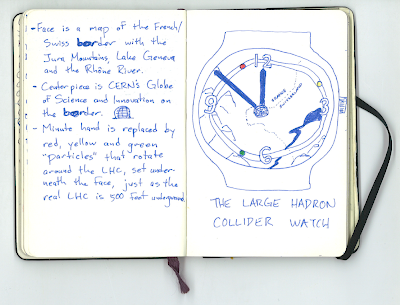 - Face is a map of the French/
Swiss border with the
Jura Mountains, Lake Geneva
and the Rhône River.
- Centerpiece is CERN's Globe
of Science and Innovation on
the border.
- Minute hand is replaced by
red, yellow and green
"particles" that rotate
around the LHC, set under-
neath the face, just as the
real LHC is 500 feet underground.
12
3
6
9
FRANCE
SWITZERLAND
THE LARGE HADRON
COLLIDER WATCH